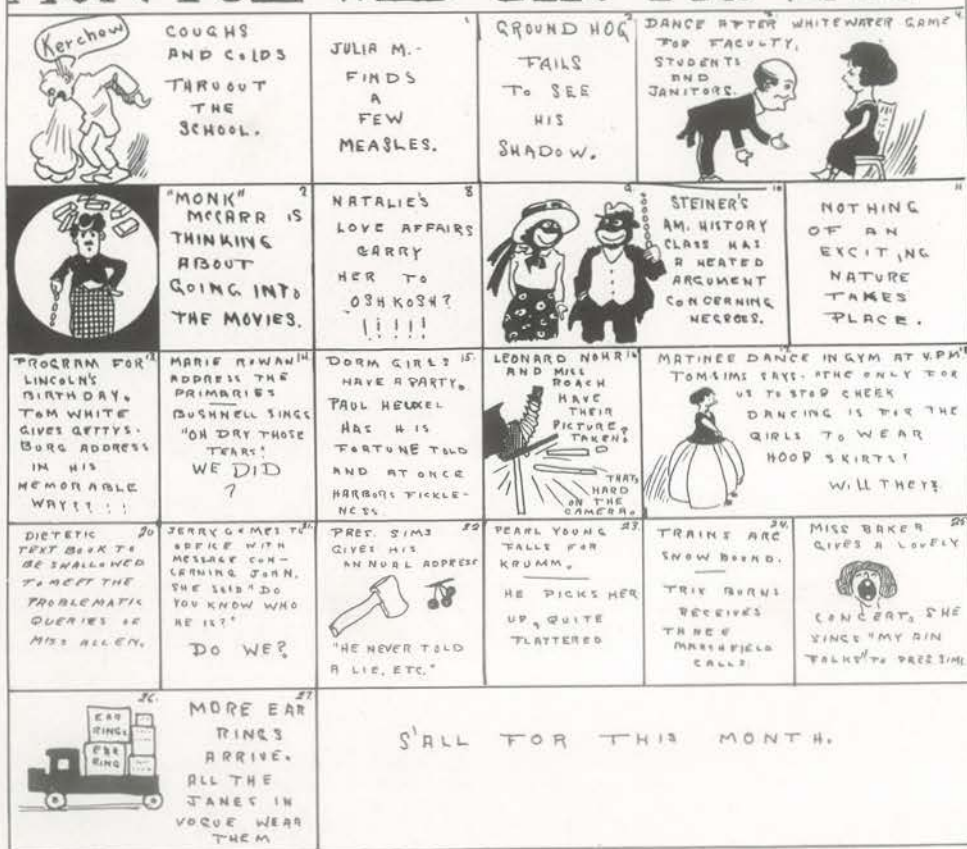 Kerchow
COUGHS
AND COLDS
THRUOUT
THE
SCHOOL.
1
JULIA M.-
FINDS
A
FEW
MEASLES.
2
GROUND HOG
FAILS
TO SEE
HIS
SHADOW.
4.
DANCE AFTER WHITEWATER GAME
FOR FACULTY,
STUDENTS
AND
JANITORS.
7
"MONK"
MCCARR IS
THINKING
ABOUT
GOING INTO
THE MOVIES.
8
NATALIE'S
LOVE AFFAIRS
CARRY
HER TO
OSHKOSH?
!!!!!
9
10
STEINER'S
AM. HISTORY
CLASS HAS
A HEATED
ARGUMENT
CONCERNING
NEGROES.
11
NOTHING
OF AN
EXCITING
NATURE
TAKES
PLACE.
PROGRAM FOR
LINCOLN'S
BIRTHDAY.
TOM WHITE
GIVES GETTYS-
BURG ADDRESS
IN HIS
MEMORABLE
WAY
14.
MARIE ROWAN
ADDRESS THE
PRIMARIES
BUSHNELL SINGS
"OH DRY THOSE
TEARS!
WE DID
?
15.
DORM GIRLS
HAVE A PARTY.
PAUL HEUKEL
HAS HIS
FORTUNE TOLD
AND AT ONCE
HARBORS FICKLE-
NESS.
16
LEONARD NOHR
AND MISS
ROACH
HAVE
THEIR
PICTURE
TAKEN.
THATS
HARD
ON THE
CAMERA.
MATINEE DANCE IN GYM AT 4 P.M
TOM SIMS SAYS- "THE ONLY FOR
US TO STOP CHEEK
DANCING IS FOR THE
GIRLS TO WEAR
HOOP SKIRTS!
WILL THEY?
20
DIETETIC
TEXT BOOK TO
BE SWALLOWED
TO MEET THE
PROBLEMATIC
QUERIES OF
MISS ALLEN.
21.
JERRY COMES TO
OFFICE WITH
MESSAGE CON-
CERNING JOHN.
SHE SAID "DO
YOU KNOW WHO
HE IS?"
DO WE?
22
PRES. SIMS
GIVES HIS
ANNUAL ADDRESS
"HE NEVER TOLD
A LIE, ETC."
23.
PEARL YOUNG
FALLS FOR
KRUMM.
HE PICKS HER
UP, QUITE
FLATTERED
24.
TRAINS ARE
SNOW BOUND.
TRIX BURNS
RECEIVES
THREE
MARSHFIELD
CALLS
25
MISS BAKER
GIVES A LOVELY
CONCERT. SHE
SINGS "MY AIN
FOLKS" TO PRES. SIMS
26.
EAR
RINGS
EAR
RING
27.
MORE EAR
RINGS
ARRIVE.
ALL THE
JANES IN
VOGUE WEAR
THEM
S'ALL FOR THIS MONTH.